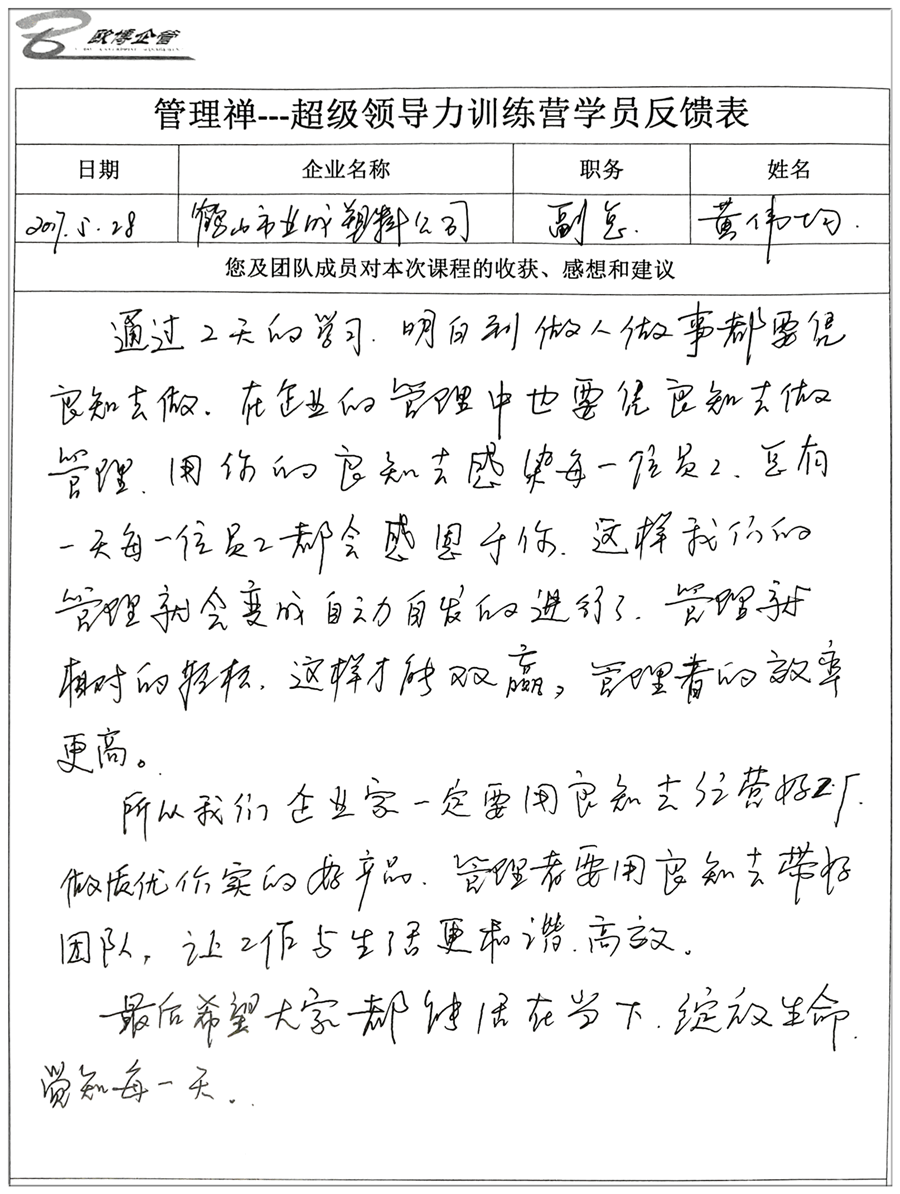 欧博企管
管理禅---超级领导力训练营学员反馈表
日期 企业名称 职务 姓名
2017.5.28 鹤山市业成塑料公司 副总. 黄伟均.
您及团队成员对本次课程的收获、感想和建议
通过2天的学习.明白到做人做事都要凭
良知去做.在企业的管理中也要凭良知去做
管理.用你的良知去感染每一位员工.总有
一天每一位员工都会感恩于你.这样我们的
管理就会变成自动自发的进行了.管理就
相对的轻松.这样才能双赢,管理者的效率
更高。
所以我们企业家一定要用良知去经营好工厂.
做质优价实的好产品.管理者要用良知去带好
团队,让工作与生活更和谐.高效。
最后希望大家都能活在当下.绽放生命.
觉知每一天。